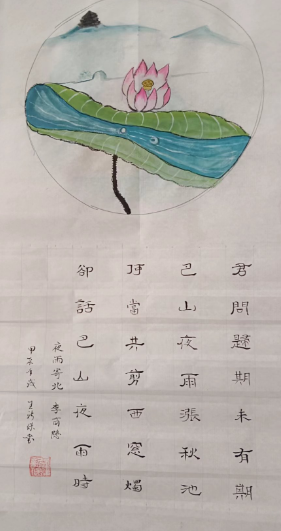 君問歸期未有期
巴山夜雨漲秋池
何當共剪西窗燭
卻話巴山夜雨時
夜雨寄北 李商隱